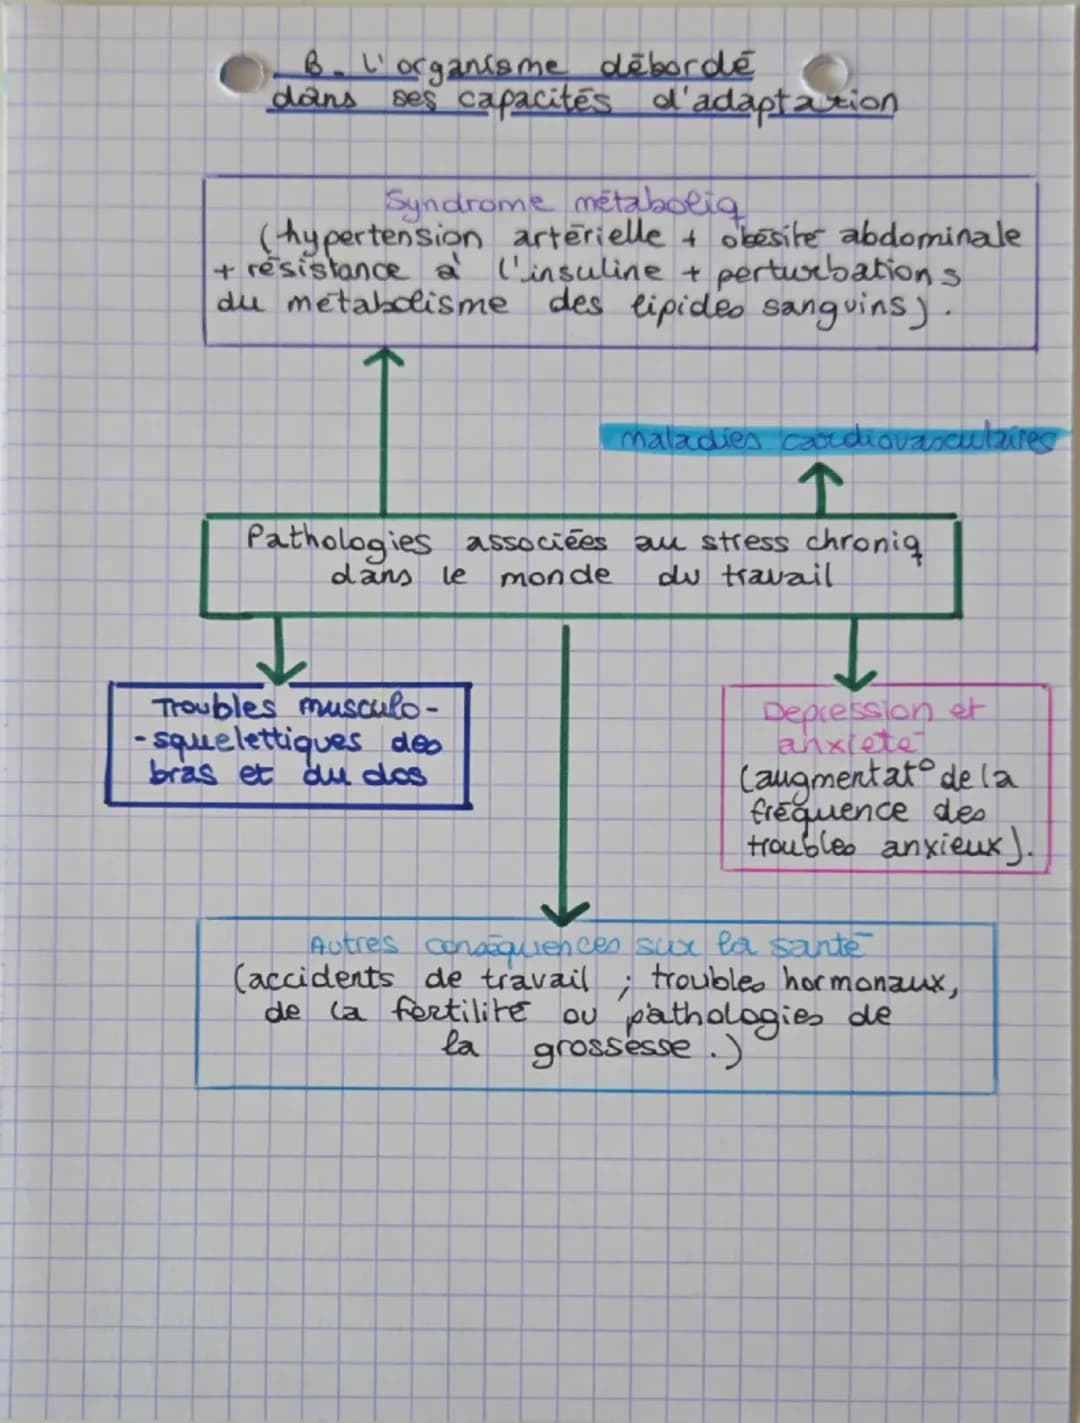 B. L'organisme débordé
dans ses capacités d'adaptation
Syndrome métaboliq
(hypertension artérielle + obésité abdominale
+ résistance à l'insuline + perturbations
du métabolisme des lipides sanguins).
maladies cardiovasculaires
Pathologies associées au stress chroniq
dans le monde du travail
Troubles musculo-
-squelettiques des
bras et du dos
Depression et
anxiété
(augmentat° de la
fréquence des
troubles anxieux).
Autres conséquences sur la santé
(accidents de travail ; troubles hormonaux,
de la fertilité ou pathologies de
la grossesse.)